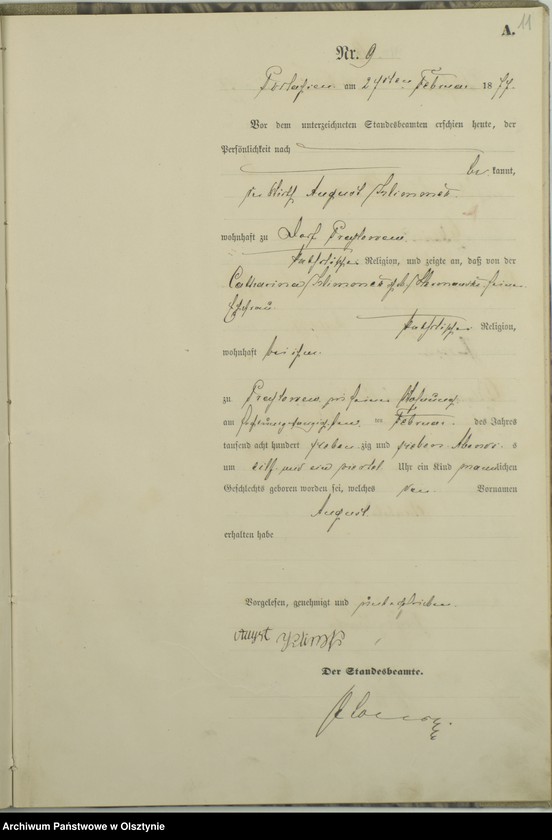 11
A.
Nr. 9
am 27ten Februar 1877.
Vor dem unterzeichneten Standesbeamten erschien heute, der
Persönlichkeit nach
be kannt,
der Wirth August
wohnhaft zu Dorf
katholischer Religion, und zeigte an, daß von der
Catharina geb. seiner
Ehefrau
katholischer Religion,
wohnhaft bei ihm
zu in seiner Wohnung
am ten Februar des Jahres
tausend acht hundert sieben zig und sieben Abends
um elf und ein viertel Uhr ein Kind männlichen
Geschlechts geboren worden sei, welches den Vornamen
August
erhalten habe
Vorgelesen, genehmigt und unterschrieben.
August
Der Standesbeamte.
Archiwum Państwowe w Olsztynie